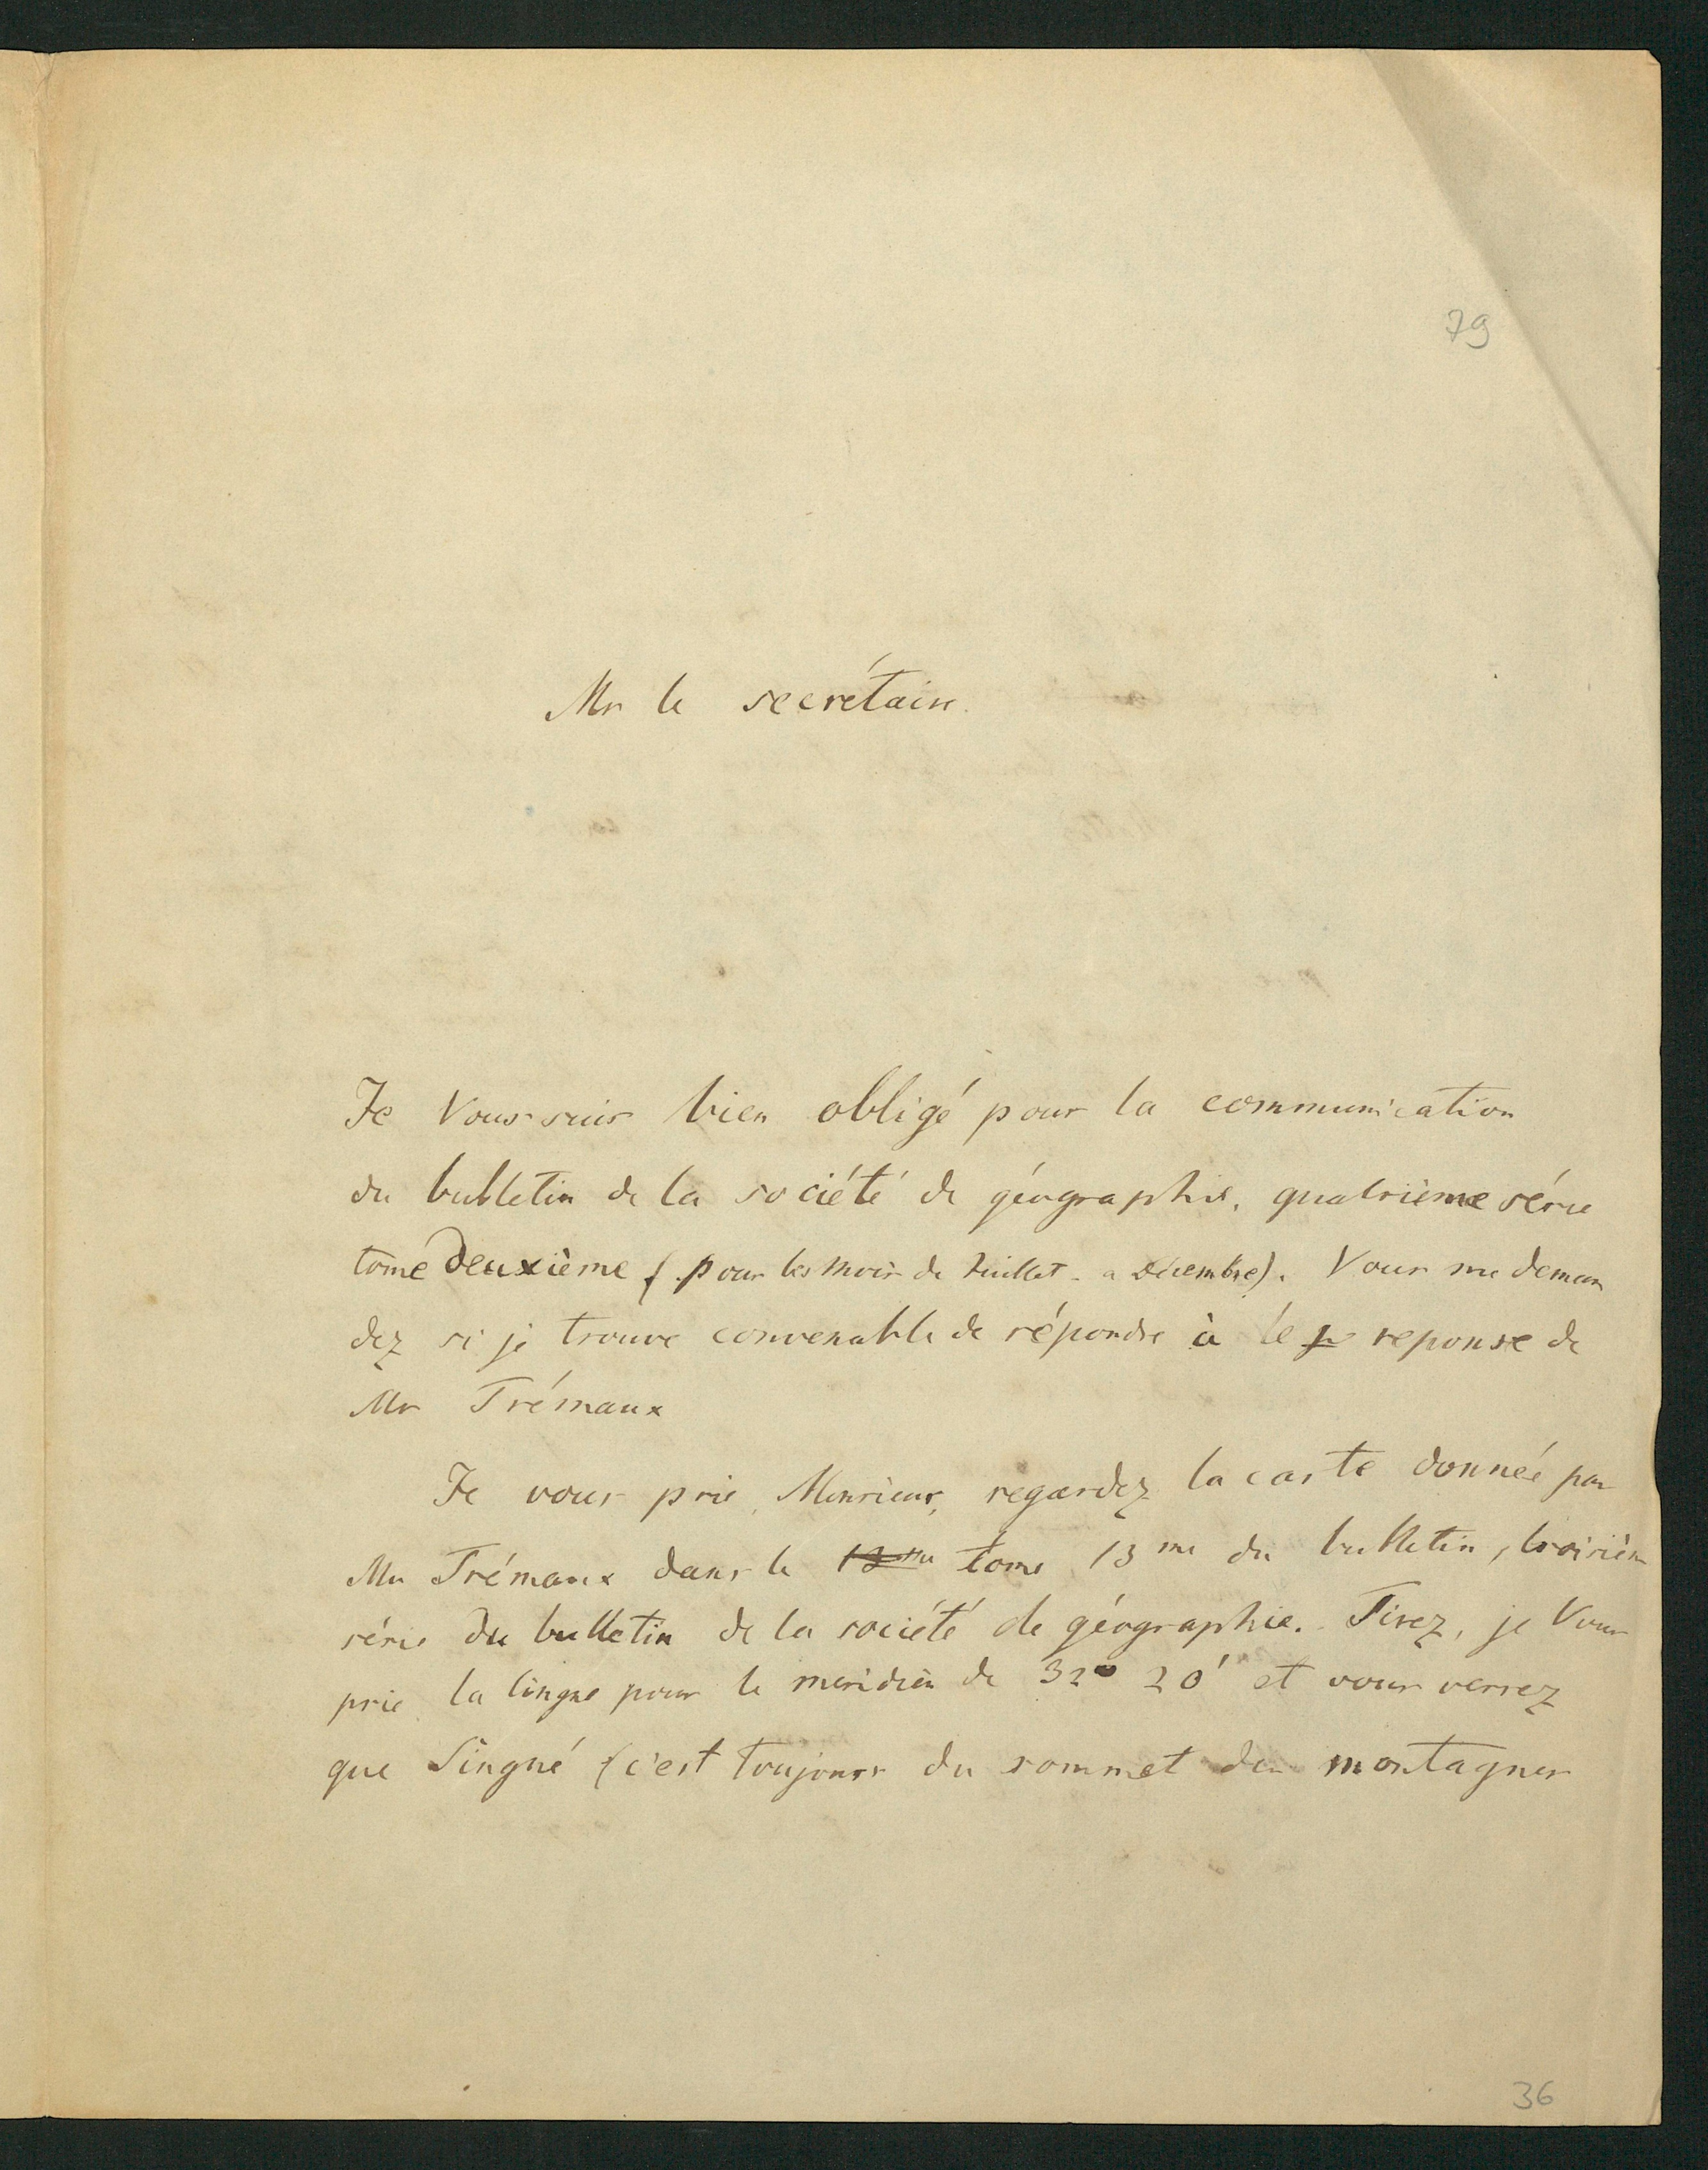 79
Mr le secrétaire.
Je Vous suis bien obligé pour la communication
du bulletin de la société de géographie, quatrième série
tome deuxième (pour les mois de Juillet - a Décembre). Vous me deman
dez si je trouve convenable de répondre à le reponse de
Mr Trémaux
Je vous prie, Monsieur, regardez la carte donnée par
Mr Trémaux dans le 12me tome 13me du bulletin, troisièm
série du bulletin de la société de géographie. Tirez, je Vous
prie la lingne pour le meridien de 32° 20' et vous verrez
que Singué (c'est toujours du sommet des montagnes
36